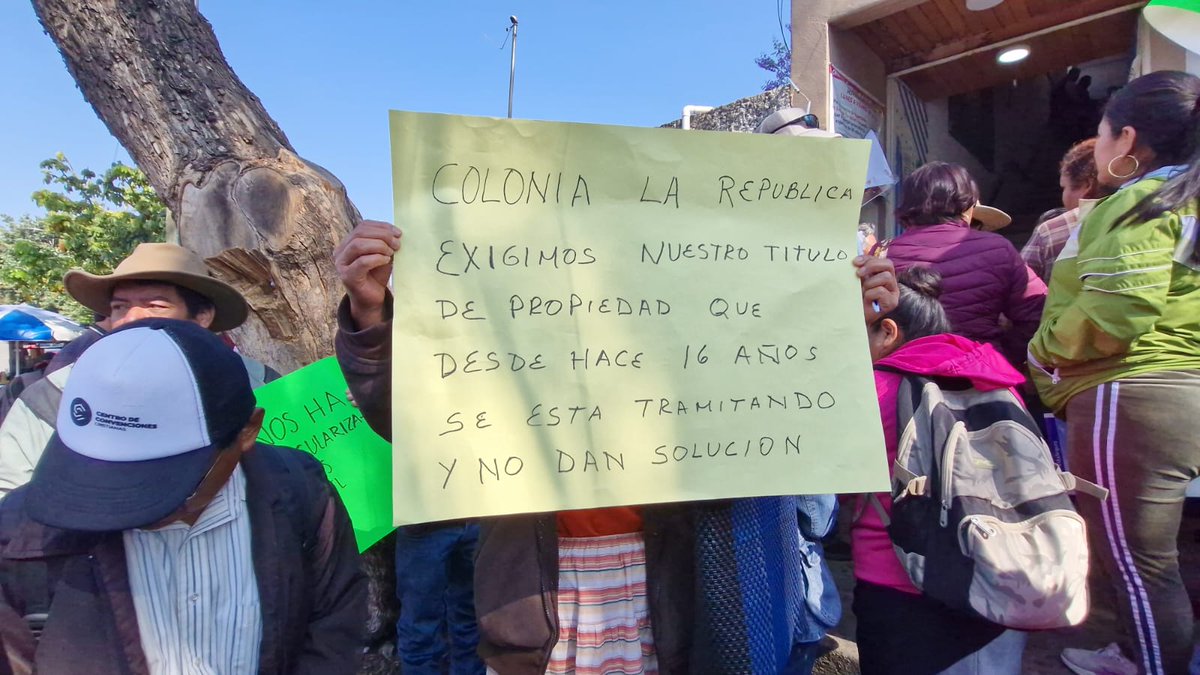 COLONIA LA REPUBLICA
EXIGIMOS NUESTRO TITULO
DE PROPIEDAD QUE
DESDE HACE 16 AÑOS
SE ESTA TRAMITANDO
Y NO DAN SOLUCION
CENTRO DE
CONVENCIONES
CRISTIANAS